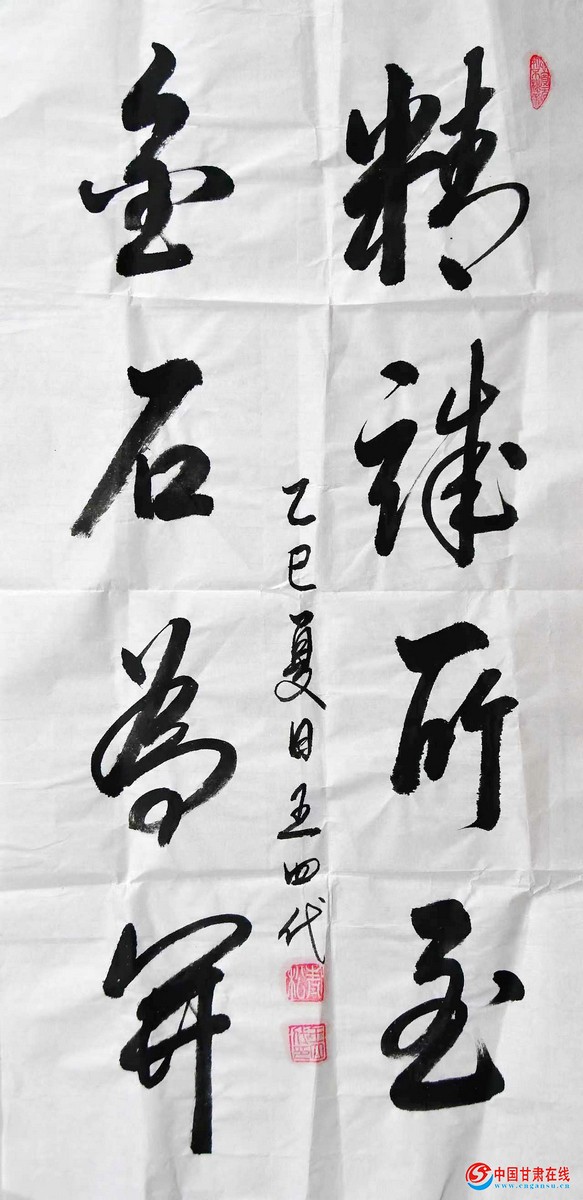 精誠所至
金石為開
乙巳夏日王四代
中国甘肃在线
www.cngansu.cn